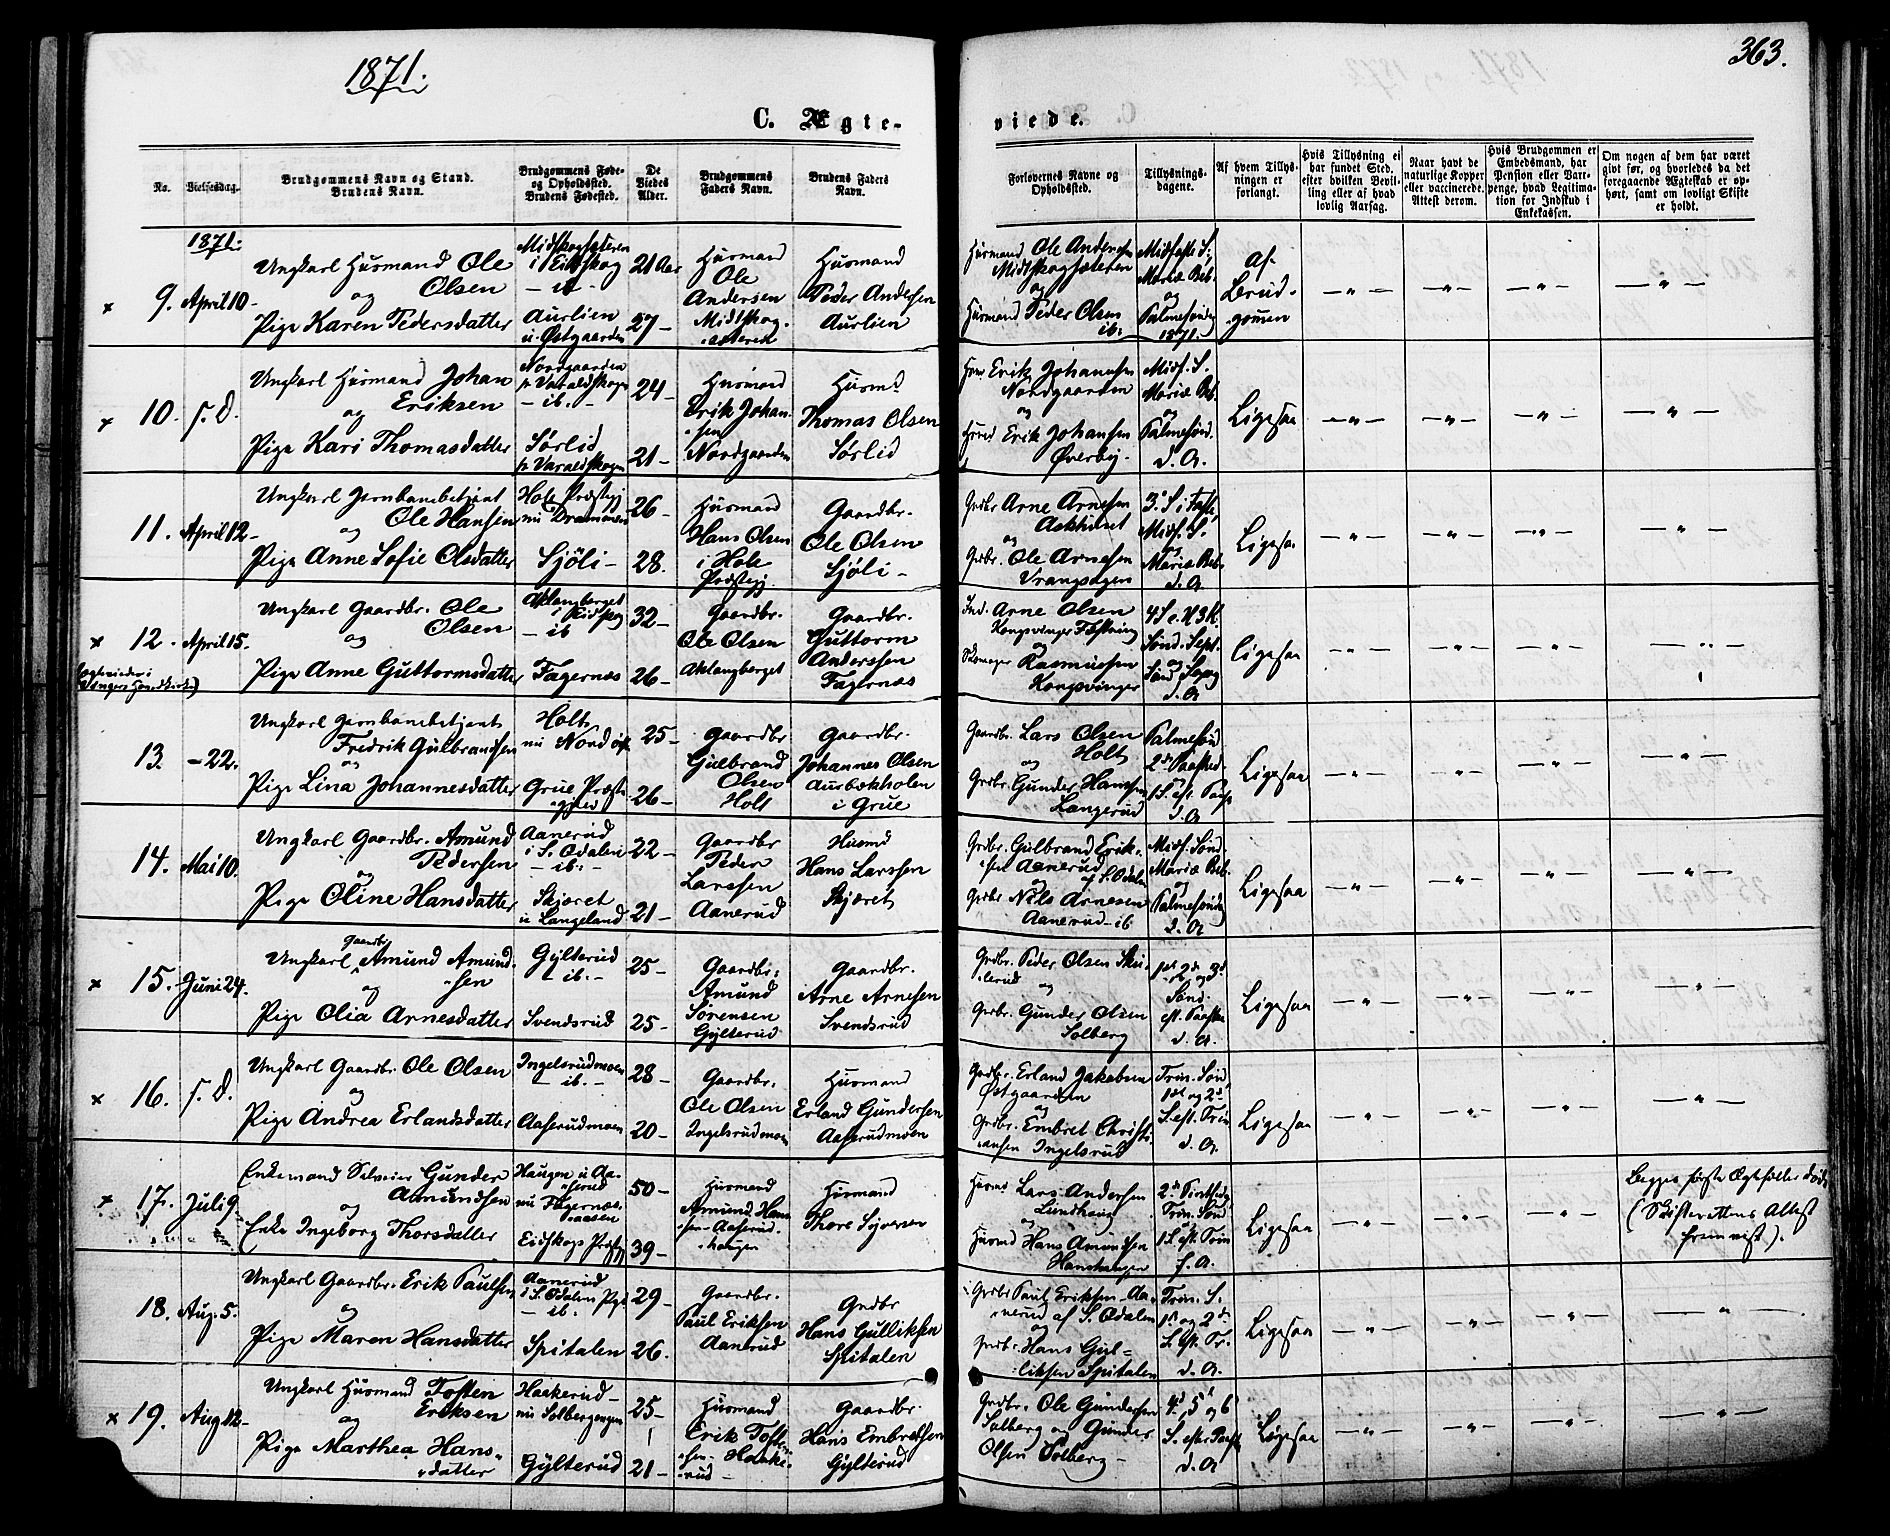 1871.
363.
C. Ægte-
viede.
No.
Vielsesdag.
Brudgommens Navn og Stand.
Brudens Navn.
Brudgommens Føde-
og Opholdssted.
Brudens Fødested.
De
Viedes
Alder.
Brudgommens
Faders Navn.
Brudens Faders
Navn.
Forlovernes Navne og
Opholdssted.
Tillysnings-
dagene.
Af hvem Tillys-
ningen er
forlangt.
Hvis Tillysning ei
har fundet Sted,
efter hvilken Bevil-
ling eller af hvad
lovlig Aarsag.
Naar havt de
naturlige Kopper
eller vaccinerede.
Attest derom.
Hvis Brudgommen er
Embedsmand, har
Pension eller Vart-
penge, hvad Legitima-
tion for Indskud i
Enkekassen.
Om nogen af dem har været
givt før, og hvorledes da det
foregaaende Ægteskab er op-
hørt, samt om lovligt Skifte
er holdt.
1871.
9. April 10-
Ungkarl Husmand Ole
Olsen
og
Pige Karen Pedersdatter
Midtskogsæteren
i Eidskog
- ib -
Aurlien
u. Østgaarden
21 Aar
27-
Husmand
Ole
Andersen
Midtskog-
sæteren
Husmand
Peder Andersen
Aurlien
Husmand Ole Andersen
Midtskogsæteren
og
Husmand Peder Olsen
ib:
Midfaste S.
Mariæ Beb.
og
Palmesøndag
1871.
af
Brud-
gommen
10. s. D.
Ungkarl Husmand Johan
Eriksen
og
Pige Kari Thomasdatter
Nordgaarden
p. Varaldskogen
- ib. -
Sørlid
p. Varaldskogen
24-
21-
Husmand
Erik Johan-
sen
Nordgaarden
Husmd
Thomas Olsen
Sørlid
Hum. Erik Johansen
Nordgaarden
og
Husmd Erik Johansen
Øverby.
Midf. S.
Mariæ Beb.
og
Palmesønd.
d. A.
Ligesaa
11. April 12-
Ungkarl Jernbanebetjent
Ole Hansen
og
Pige Anne Sofie Olsdatter
Hole Præstegj
nu Drammen
Sjöli-
26-
28.
Husmand
Hans Olsen
i Hole
Præstegj.
Gaardbr.
Ole Olsen
Sjöli-
Grdbr Arne Arnesen
Askhuset
og
Grdbr. Ole Arnesen
Vrangsagen
3. S. i Faste,
Midf. S.
og
Mariæ Beb.
d. A
Ligesaa
12. April 15.
Ungkarl Gaardbr. Ole
Olsen
og
Pige Anne Guttormsdatter
Aklangberget
i Eidskog
- ib
Fagernæs
32-
26-
Gaardbr.
Ole Olsen
Aklangberget
Gaardbr.
Guttorm
Anderssen
Fagernæs
Arne Olsen
Kongsvinger Fæstning
og
Skomager Rasmussen
Kongsvinger
4 S. e. H 3 K.
Sønd. Sept.
og
Sønd. Sexag
d. A
Ligesaa
13. -22.
Ungkarl Jernbanebetjent
Fredrik Gulbrandsen
og
Pige Lina Johannesdatter
Holt
nu
Grue Præste
gjeld
25-
26-
Gaardbr
Gulbrand
Olsen
Holt
Gaardbr.
Johannes Olsen
Aurbækholen
i Grue
Gaardbr. Lars Olsen
Holt
og
Grdbr. Gunder Hansen
Langerud
Palmesønd
2den Paaskedag
1 S. eft. Paaske
d. A
Ligesaa
14. Mai 10.
Ungkarl Gaardbr. Amund
Pedersen
og
Pige Oline Hansdatter
Aanerud
i S. Odalen
- ib: -
Skjæret
u Langeland
22-
21-
Gaardbr
Peder
Larssen
Aanerud
Husmd
Hans Larssen
Skjæret
Grdbr. Gulbrand Erik-
sen Aanerud
af S. Odalen
og
Grdbr Nils Arnesen
Aanerud ib
Midf. Sønd.
Mariæ Beb.
og
Palmesøndag
d. A
Ligesaa
15. Juni 24.
Gaardbr
Ungkarl Amund Amund-
sen
og
Pige Olia Arnesdatter
Gylterud
- ib. -
Svendsrud
25-
25-
Gaardbr.
Amund
Sørensen
Gylterud
Gaardbr.
Arne Arnesen
Svendsrud
Grdbr. Peder Olsen Sku-
lerud
og
Grdbr. Gunder Olsen
Solberg
1ste 2den og 3d
Sønd.
eft. Paaske
d. A.
Ligesaa
16. s. D.
Ungkarl Gaardbr. Ole Olsen
og
Pige Andrea Erlandsdatter
Ingelsrudmoen
- ib. -
Aaserudmoen
28-
20-
Gaardbr.
Ole Olsen
Ingelsrudmoen
Husmand
Erland Gundersen
Aaserudmoen
Grdbr. Erland Jakobsen
Østgaarden
og
Grdbr. Embret Christi-
ansen Ingelsrud
Trin. Sønd,
1ste og 2d
S. eft. Trin
d. A.
Ligesaa
17. Juli 9
Enkemand Selveier Gunder
Aamundsen
og
Enke Ingeborg Thorsdatter
Haugen u Aa-
serud
nu Fagernæs-
aasen
Eidskogs Præstegj
50-
39-
Husmand
Amund Han-
sen Aaserud-
haugen
Husmand
Thore Syversen
Husmd Lars Andersen
Lundhaug
og
Husmd Hans Amundsen
Hanshaugen
2den Pintsedag,
Trin. Sønd
1 S. eft. Trin
s. A.
Ligesaa
Begges første Ægtefæller døde
(Skifterettens Attest
fremvist).
18. Aug. 5.
Ungkarl Gaardbr. Erik Paulsen
og
Pige Maren Hansdatter
Aanerud
i S. Odalen Pgj
- ib. -
Spitalen
29-
26.
Gaardbr.
Paul Eriksen
Aanerud
Grdbr
Hans Gulliksen
Spitalen
Grdbr Paul Eriksen Aa-
nerud af S. Odalen
og
Grdb. Hans Gul-
liksen Spitalen
Trin. S.
1ste og 2den
S. eft. Tr.
d. A.
Ligesaa
19. Aug 12-
Ungkarl Husmand Tosten
Eriksen
og
Pige Marthea Hans-
datter
Haakerud-
nu Solbergengen
Gylterud
25-
21-
Husmand
Erik Tosten-
sen Haake-
rud
Gaardbr.
Hans Embretsen
Gylterud
Grdbr. Ole Gundersen
Solberg og Gunder
Olsen Solberg-
4d, 5 og 6
S. efter Paaske
d. A
Ligesaa